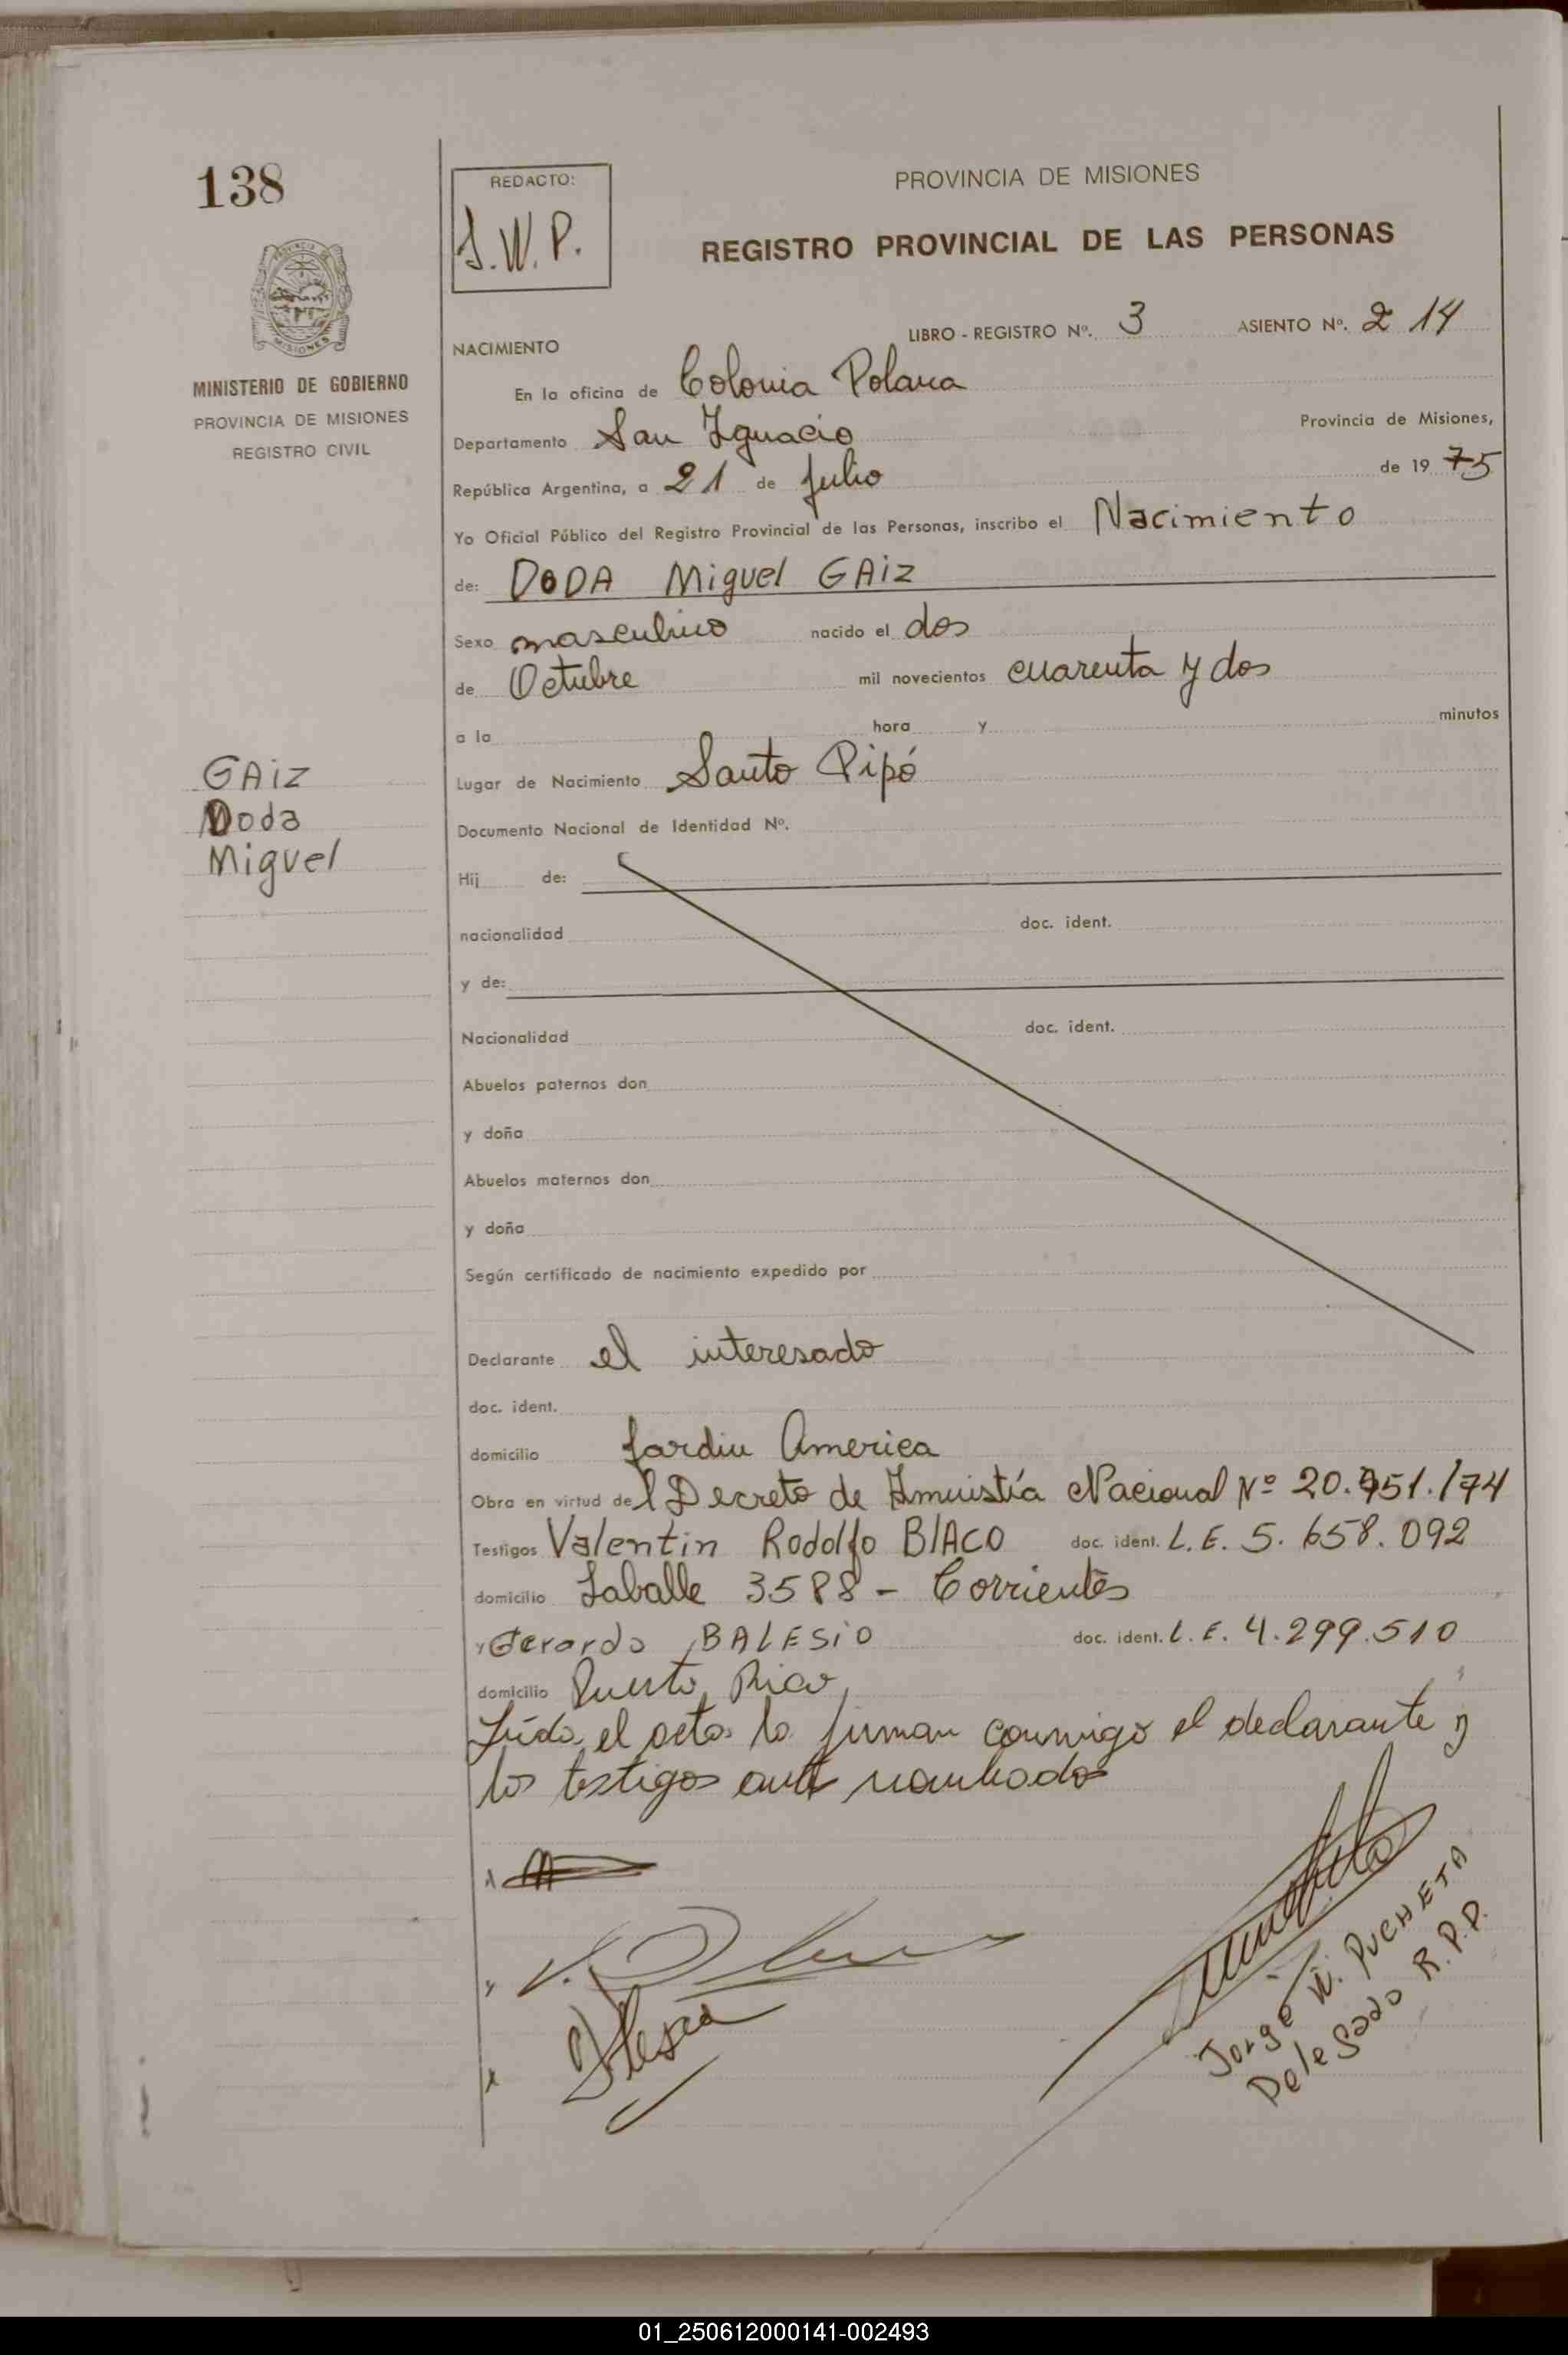 138
REDACTO:
J.W.P.
PROVINCIA DE MISIONES
REGISTRO PROVINCIAL DE LAS PERSONAS
PROVINCIA
MISIONES
MINISTERIO DE GOBIERNO
PROVINCIA DE MISIONES
REGISTRO CIVIL
LIBRO - REGISTRO Nº. 3 ASIENTO Nº. 214
NACIMIENTO
En la oficina de Colonia Polana
Departamento San Ignacio Provincia de Misiones,
República Argentina, a 21 de Julio de 19 75
Yo Oficial Público del Registro Provincial de las Personas, inscribo el Nacimiento
de: DODA Miguel GAiZ
Sexo masculino nacido el dos
de Octubre mil novecientos cuarenta y dos
a la hora y minutos
Lugar de Nacimiento Santo Pipó
GAiZ
Doda
Miguel
Documento Nacional de Identidad Nº.
Hij de:
nacionalidad doc. ident.
y de:
Nacionalidad doc. ident.
Abuelos paternos don
y doña
Abuelos maternos don
y doña
Según certificado de nacimiento expedido por
Declarante el interesado
doc. ident.
domicilio Jardin America
Obra en virtud del Decreto de Amnistía Nacional Nº 20.951./74
Testigos Valentin Rodolfo BIACO doc. ident. L.E. 5.658.092
domicilio Laballe 3588 - Corrientes
y Gerardo BALESiO doc. ident. L.E. 4.299.510
domicilio Puerto Rico
Leída el acta la firman conmigo el declarante y
los testigos ante nombrados
y
Jorge W. PUCHETA
Delegado R.P.P.
01_250612000141-002493